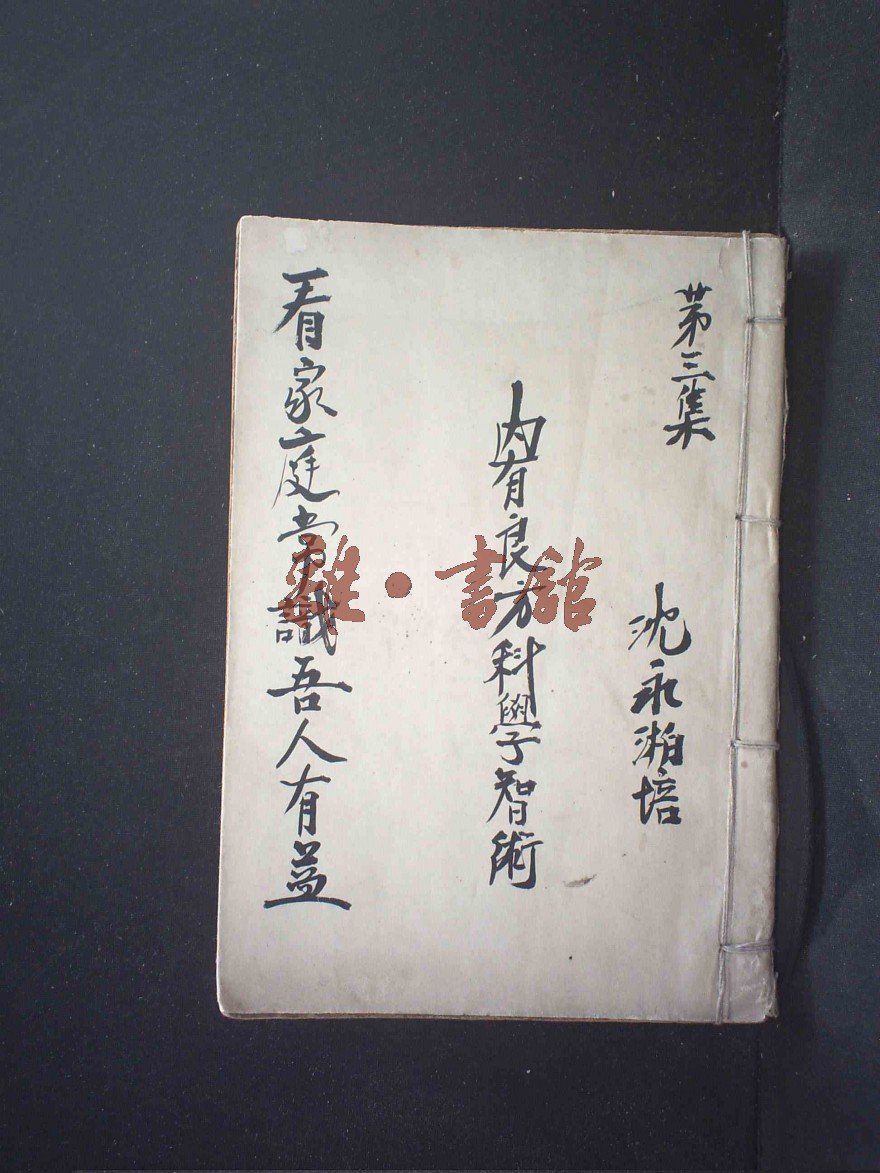 第三集
沈永湘培
內有良方科學智術
看家庭常識吾人有益
雜·書舘